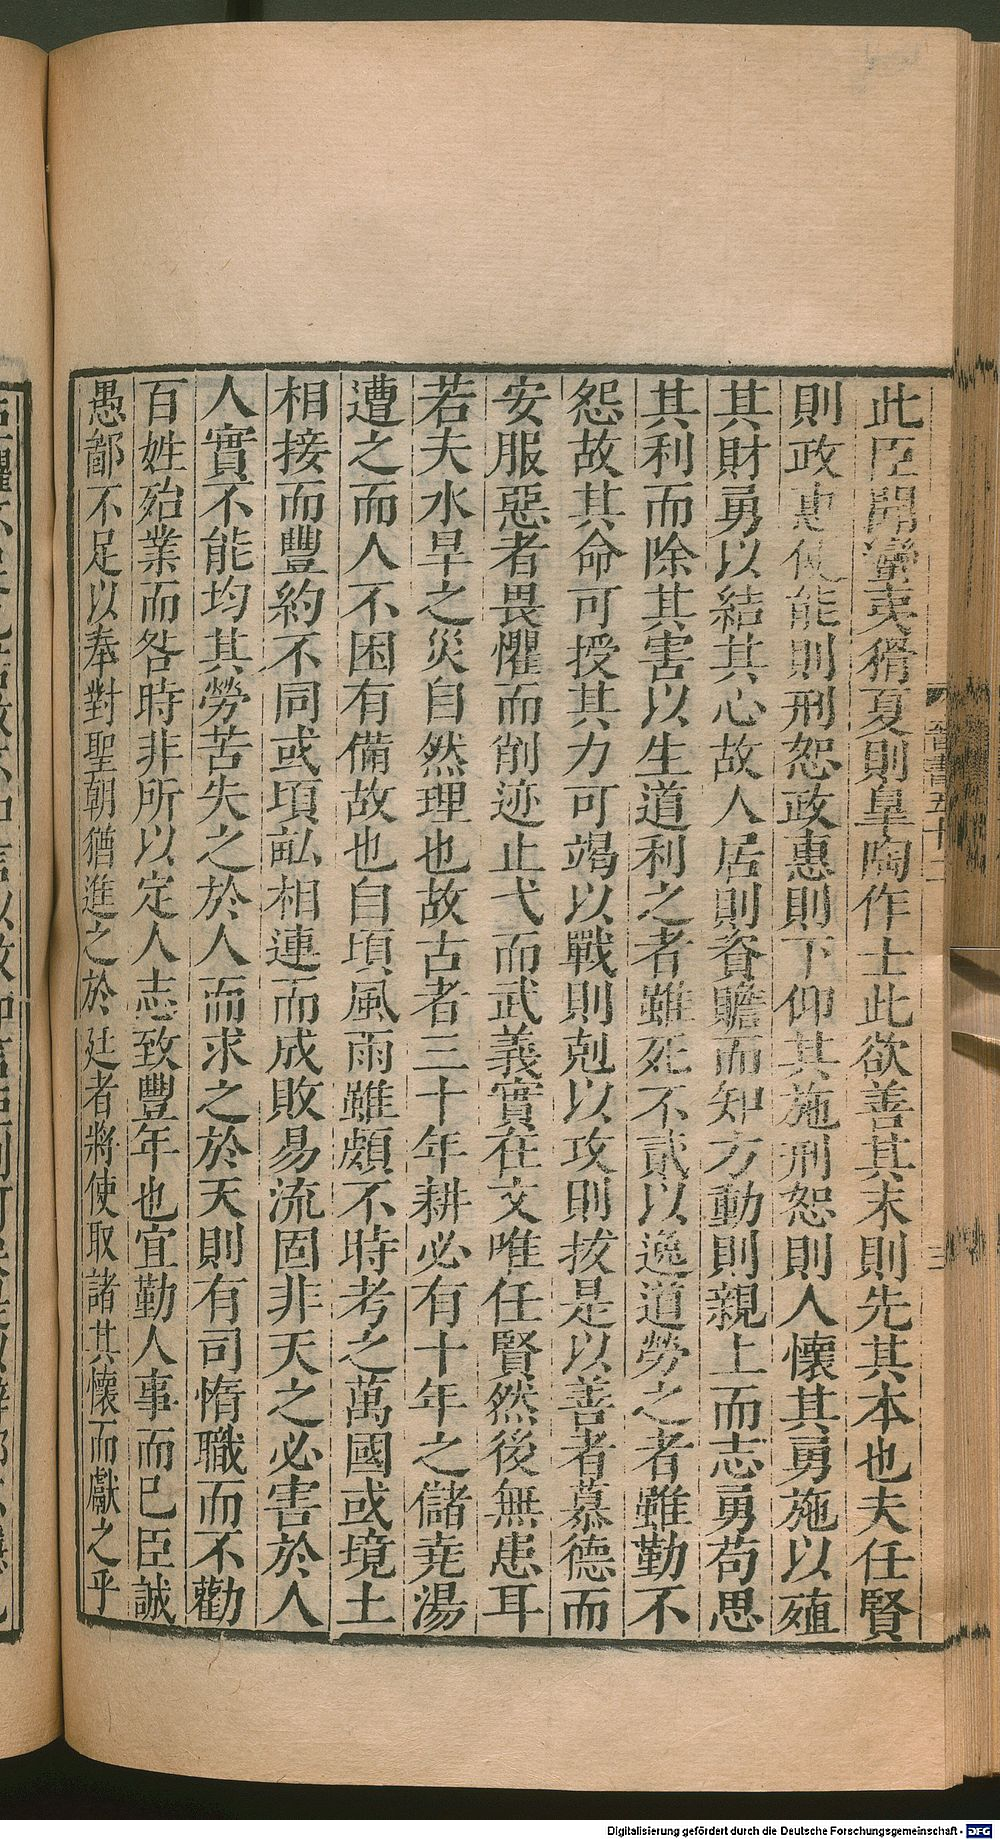 此臣聞蠻夷猾夏則皇陶作士此欲善其末則先其本也夫任賢
則政惠使能則刑恕政惠則下仰其施刑恕則人懷其勇施以殖
其財勇以結其心故人居則資贍而知方動則親上而志勇苟思
其利而除其害以生道利之者雖死不貳以逸道勞之者雖勤不
怨故其命可授其力可竭以戰則剋以攻則拔是以善者慕德而
安服惡者畏懼而削迹止戈而武義實在文唯任賢然後無患耳
若夫水旱之災自然理也故古者三十年耕必有十年之儲堯湯
遭之而人不困有備故也自頃風雨雖頗不時考之萬國或境土
相接而豐約不同或頃畝相連而成敗易流固非天之必害於人
人實不能均其勞苦失之於人而求之於天則有司惰職而不勸
百姓殆業而咎時非所以定人志致豐年也宜勤人事而已臣誠
愚鄙不足以奉對聖朝猶進之於廷者將使取諸其懷而獻之乎
晉書五十二
Digitalisierung gefördert durch die Deutsche Forschungsgemeinschaft - DFG